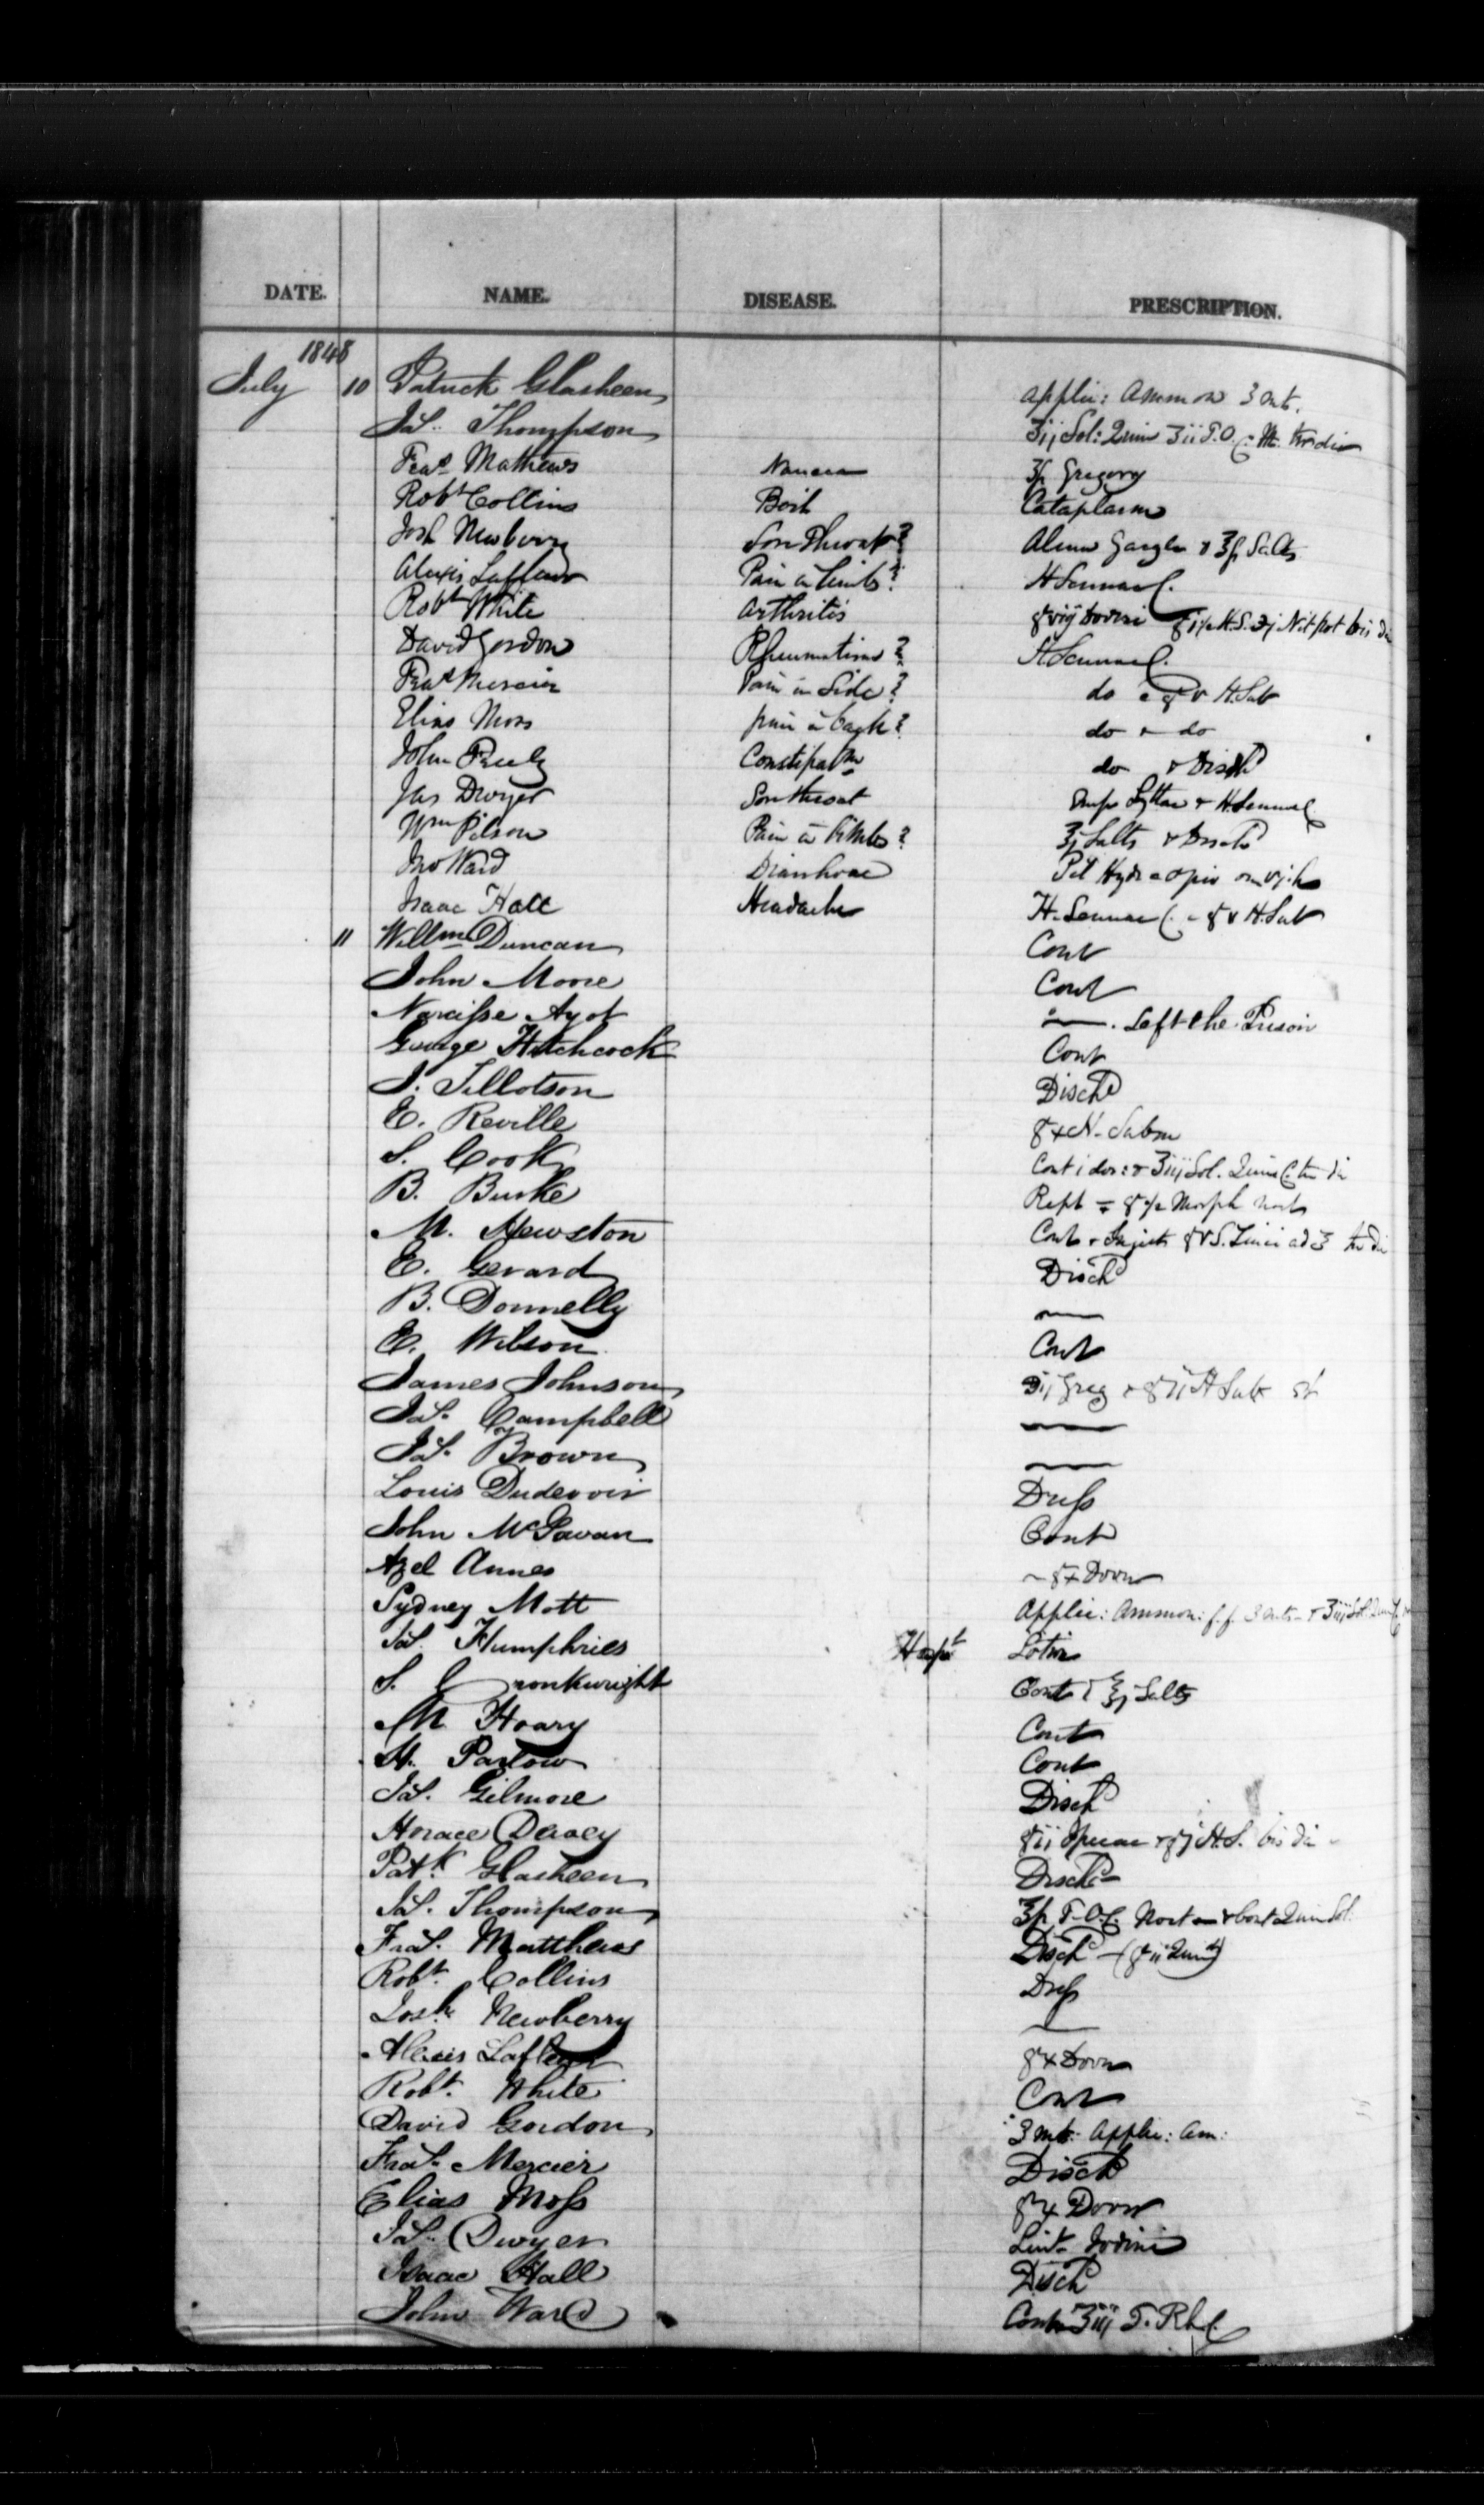 DATE. NAME. DISEASE. PRESCRIPTION.
1848
July 10 Patrick Glasheen Applic: Ammon 3 nts.
Jas. Thompson ʒij Sol: Quin ʒii T.O.C. M. ter die
Fras Mathews Nausea Gregory
Robt Collins Boil Cataplasm
Josh Newberry Sore Throat? Alum Gargle & Salts
Alexis Lafleur Pain in limbs? H Sennae C.
Robt White Arthritis gr viij Doveri Nit pot bis die
David Gordon Rheumatism? H Sennae C.
Fras Mercier Pain in Side? do c gr v H. Sub
Elias Moss pain in back? do & do
John Pauly Constipatn do & Disch
Jas Dwyer Sore throat Emp Lyttae & H Sennae C
Wm Pilson Pain in limbs? ℥j Salts & Disch
Jno Ward Diarrhoea Pil Hydr c opio
Isaac Hall Headache H. Sennae C. c gr v H. Sub
11 Willm Duncan Cont
John Moore Cont
Narcisse Ayot — . Left the Prison
George Hitchcock Cont
J. Tillotson Disch
E. Reville gr x H. Sub
S. Cook Cont & ʒiij Sol. Quin C. ter die
B. Burke Rept Morph
M. Newston Cont & Inject
E. Gerard Disch
B. Donnelly —
E. Wilson Cont
James Johnson Greg & gr ii H Sub st
Jas. Campbell —
Jas. Brown —
Louis Dudevoir Dress
John McGavan Cont
Azel Annes — gr x Dover
Sydney Mott Applic: Ammon:
Jas. Humphries Hospt Lotio
S. Cronkwright Cont & ℥j Salts
M Hoary Cont
H. Parlow Cont
Jas. Gilmore Disch
Horace Dewey gr ii Ipecac & gr j H.S. bis die
Patk. Glasheen Disch
Jas. Thompson T.O.C. & Cont Quin Sol.
Fras. Matthews Disch — (gr ii Quin)
Robt. Collins Dress
Josh. Newberry —
Alexis Lafleur gr x Dover
Robt. White Cont
David Gordon 3 nts. Applic: Am:
Fras. Mercier Disch
Elias Moss gr x Dover
Jas. Dwyer Lint. Iodini
Isaac Hall Disch
John Ward Cont ʒiij T. Rh. C.